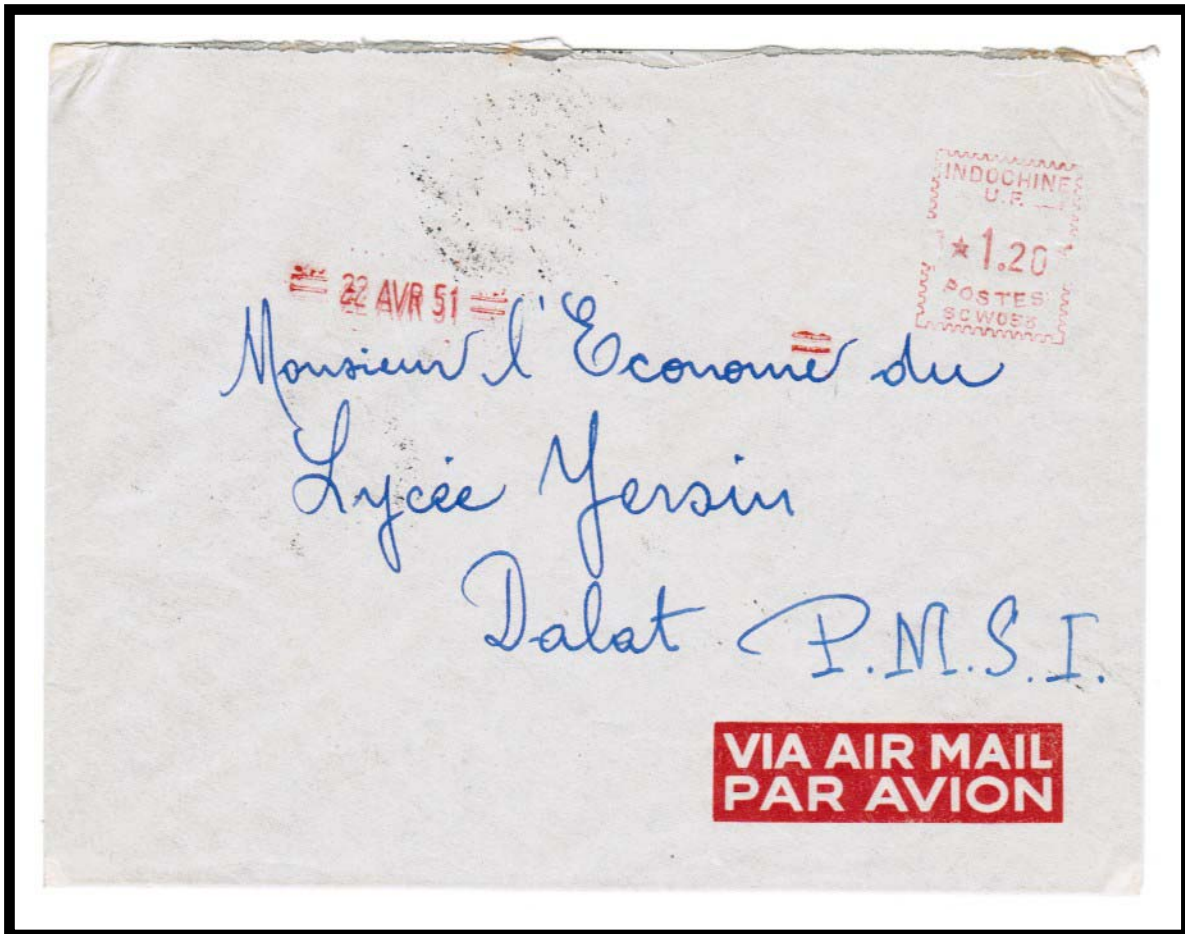 INDOCHINE
U.F.
★1.20
POSTES
22 AVR 51
Monsieur l'Econome du
Lycée Yersin
Dalat P.M.S.I.
VIA AIR MAIL
PAR AVION